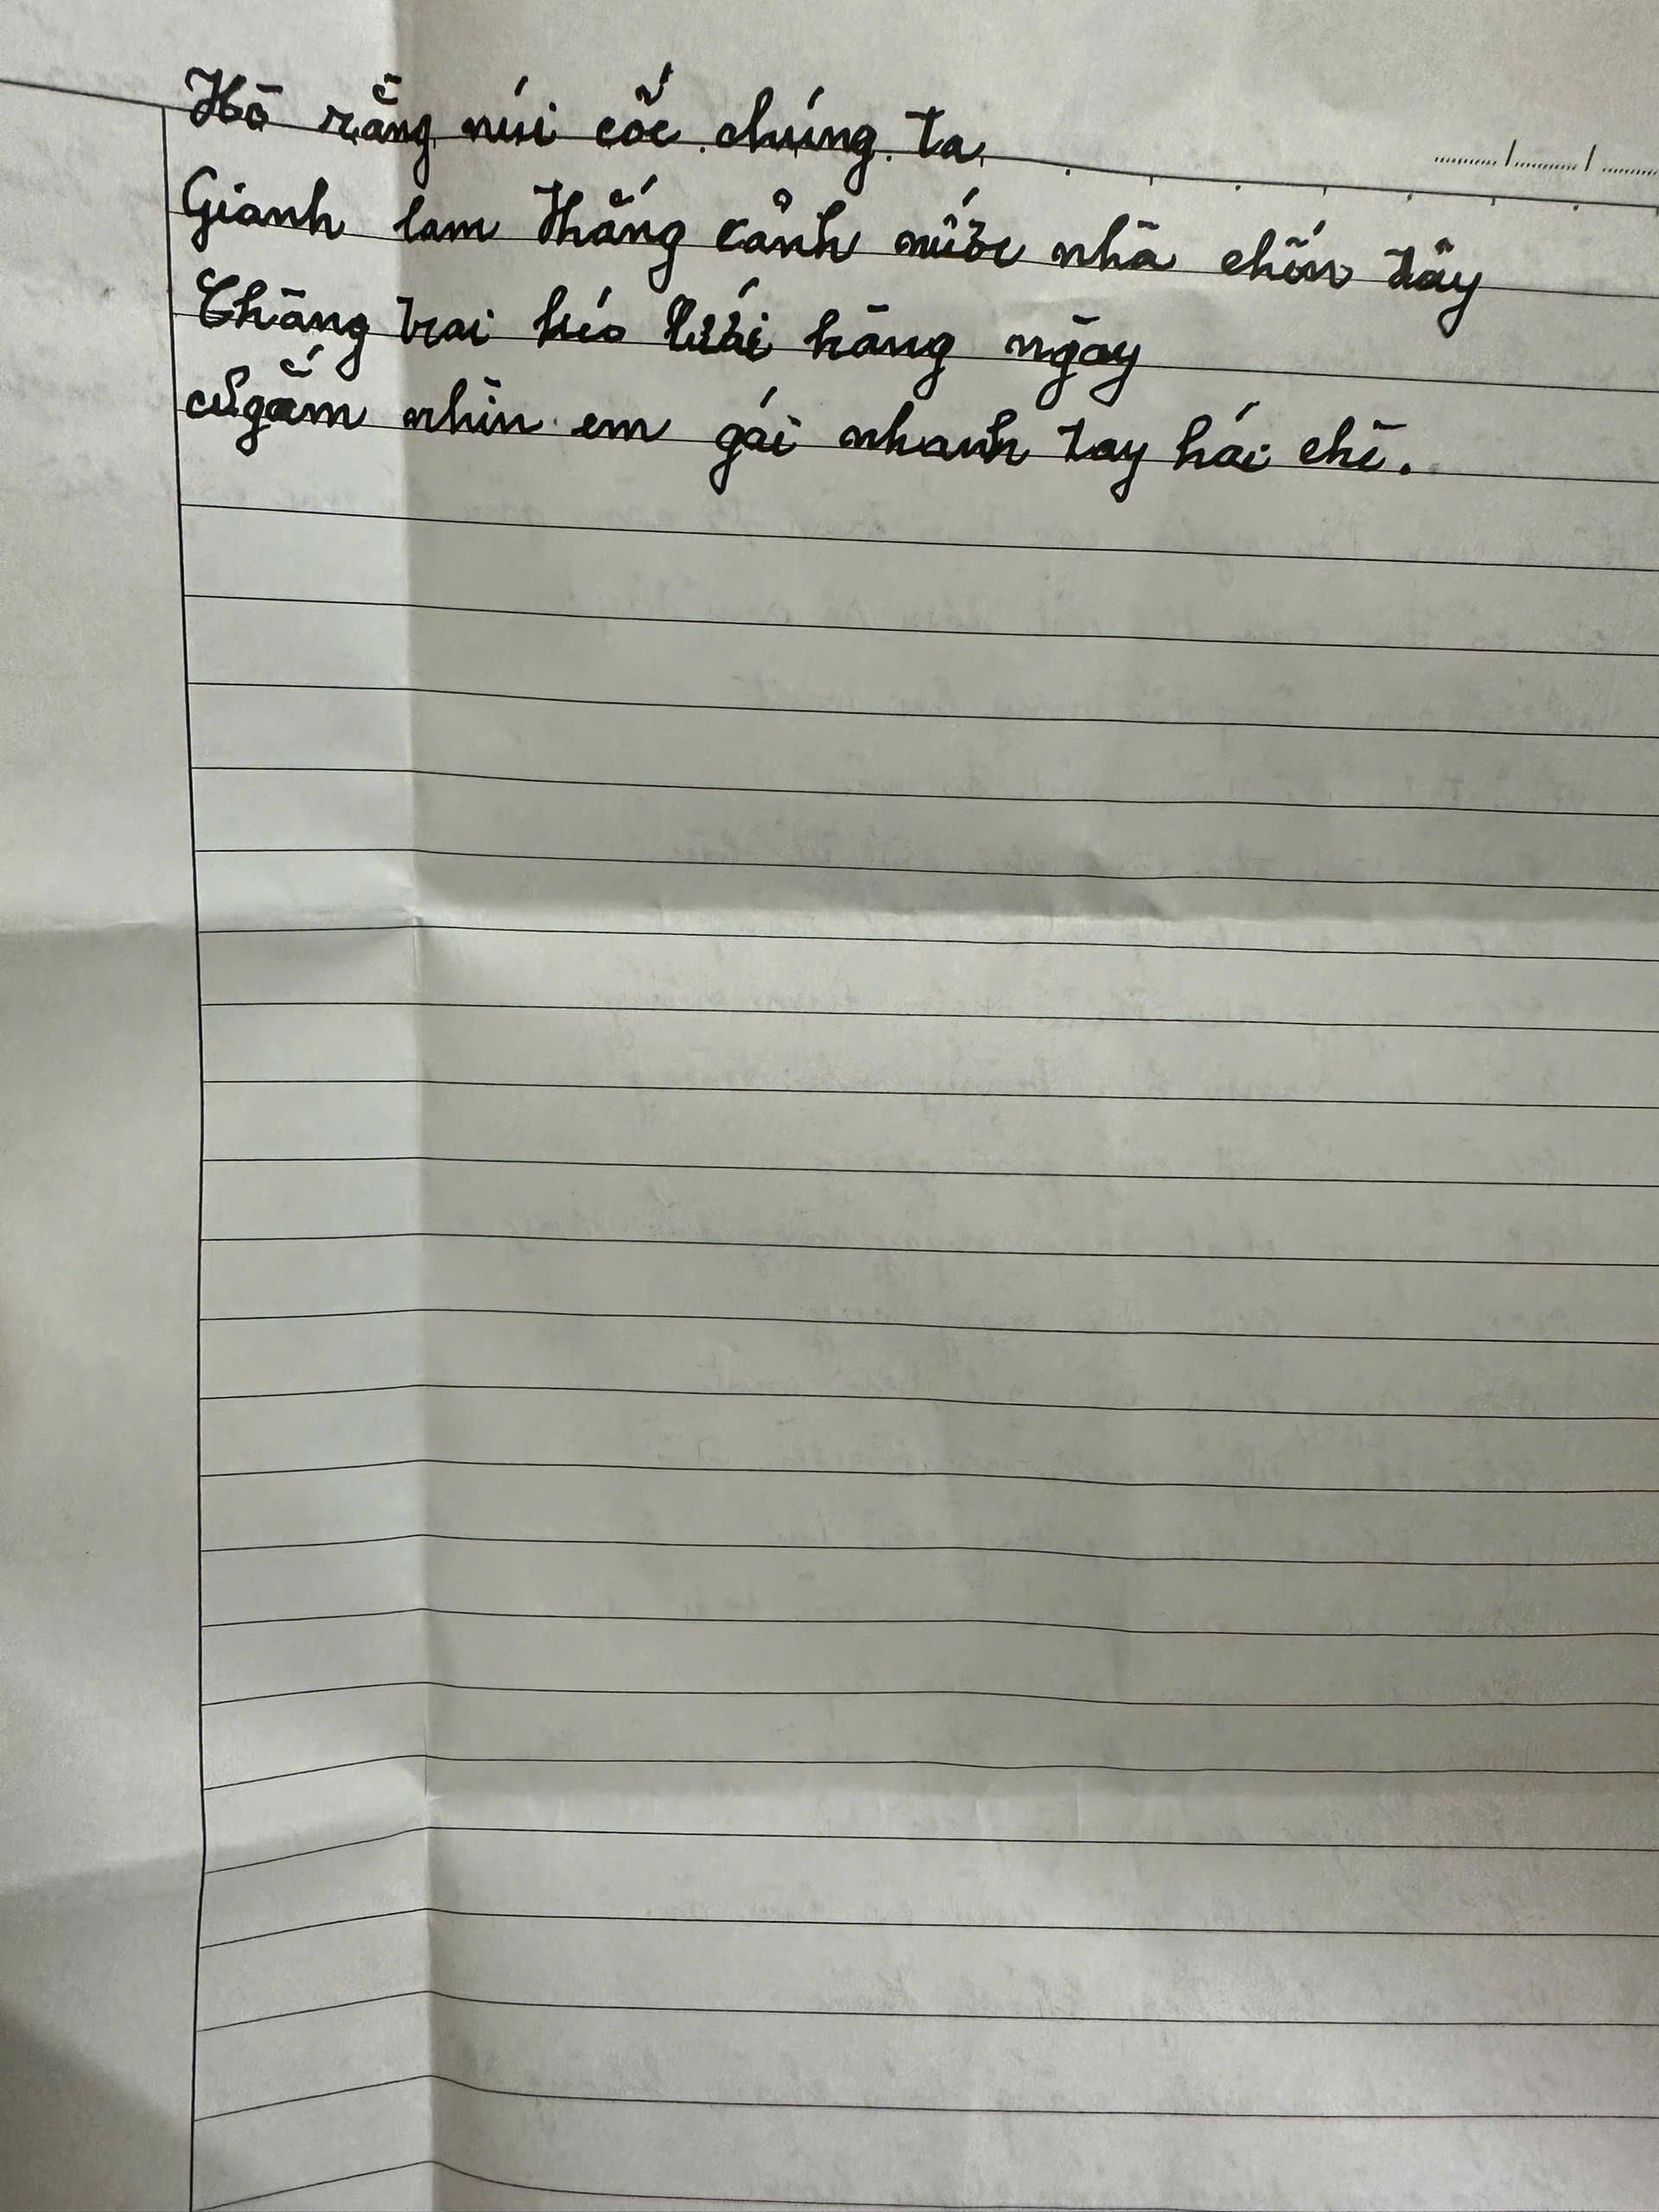 Hồ rằng núi cốc chúng ta
Gianh lam thắng cảnh nước nhà chín tầy
Chàng trai kéo lưới hàng ngày
Ngắm nhìn em gái nhanh tay hái chè.